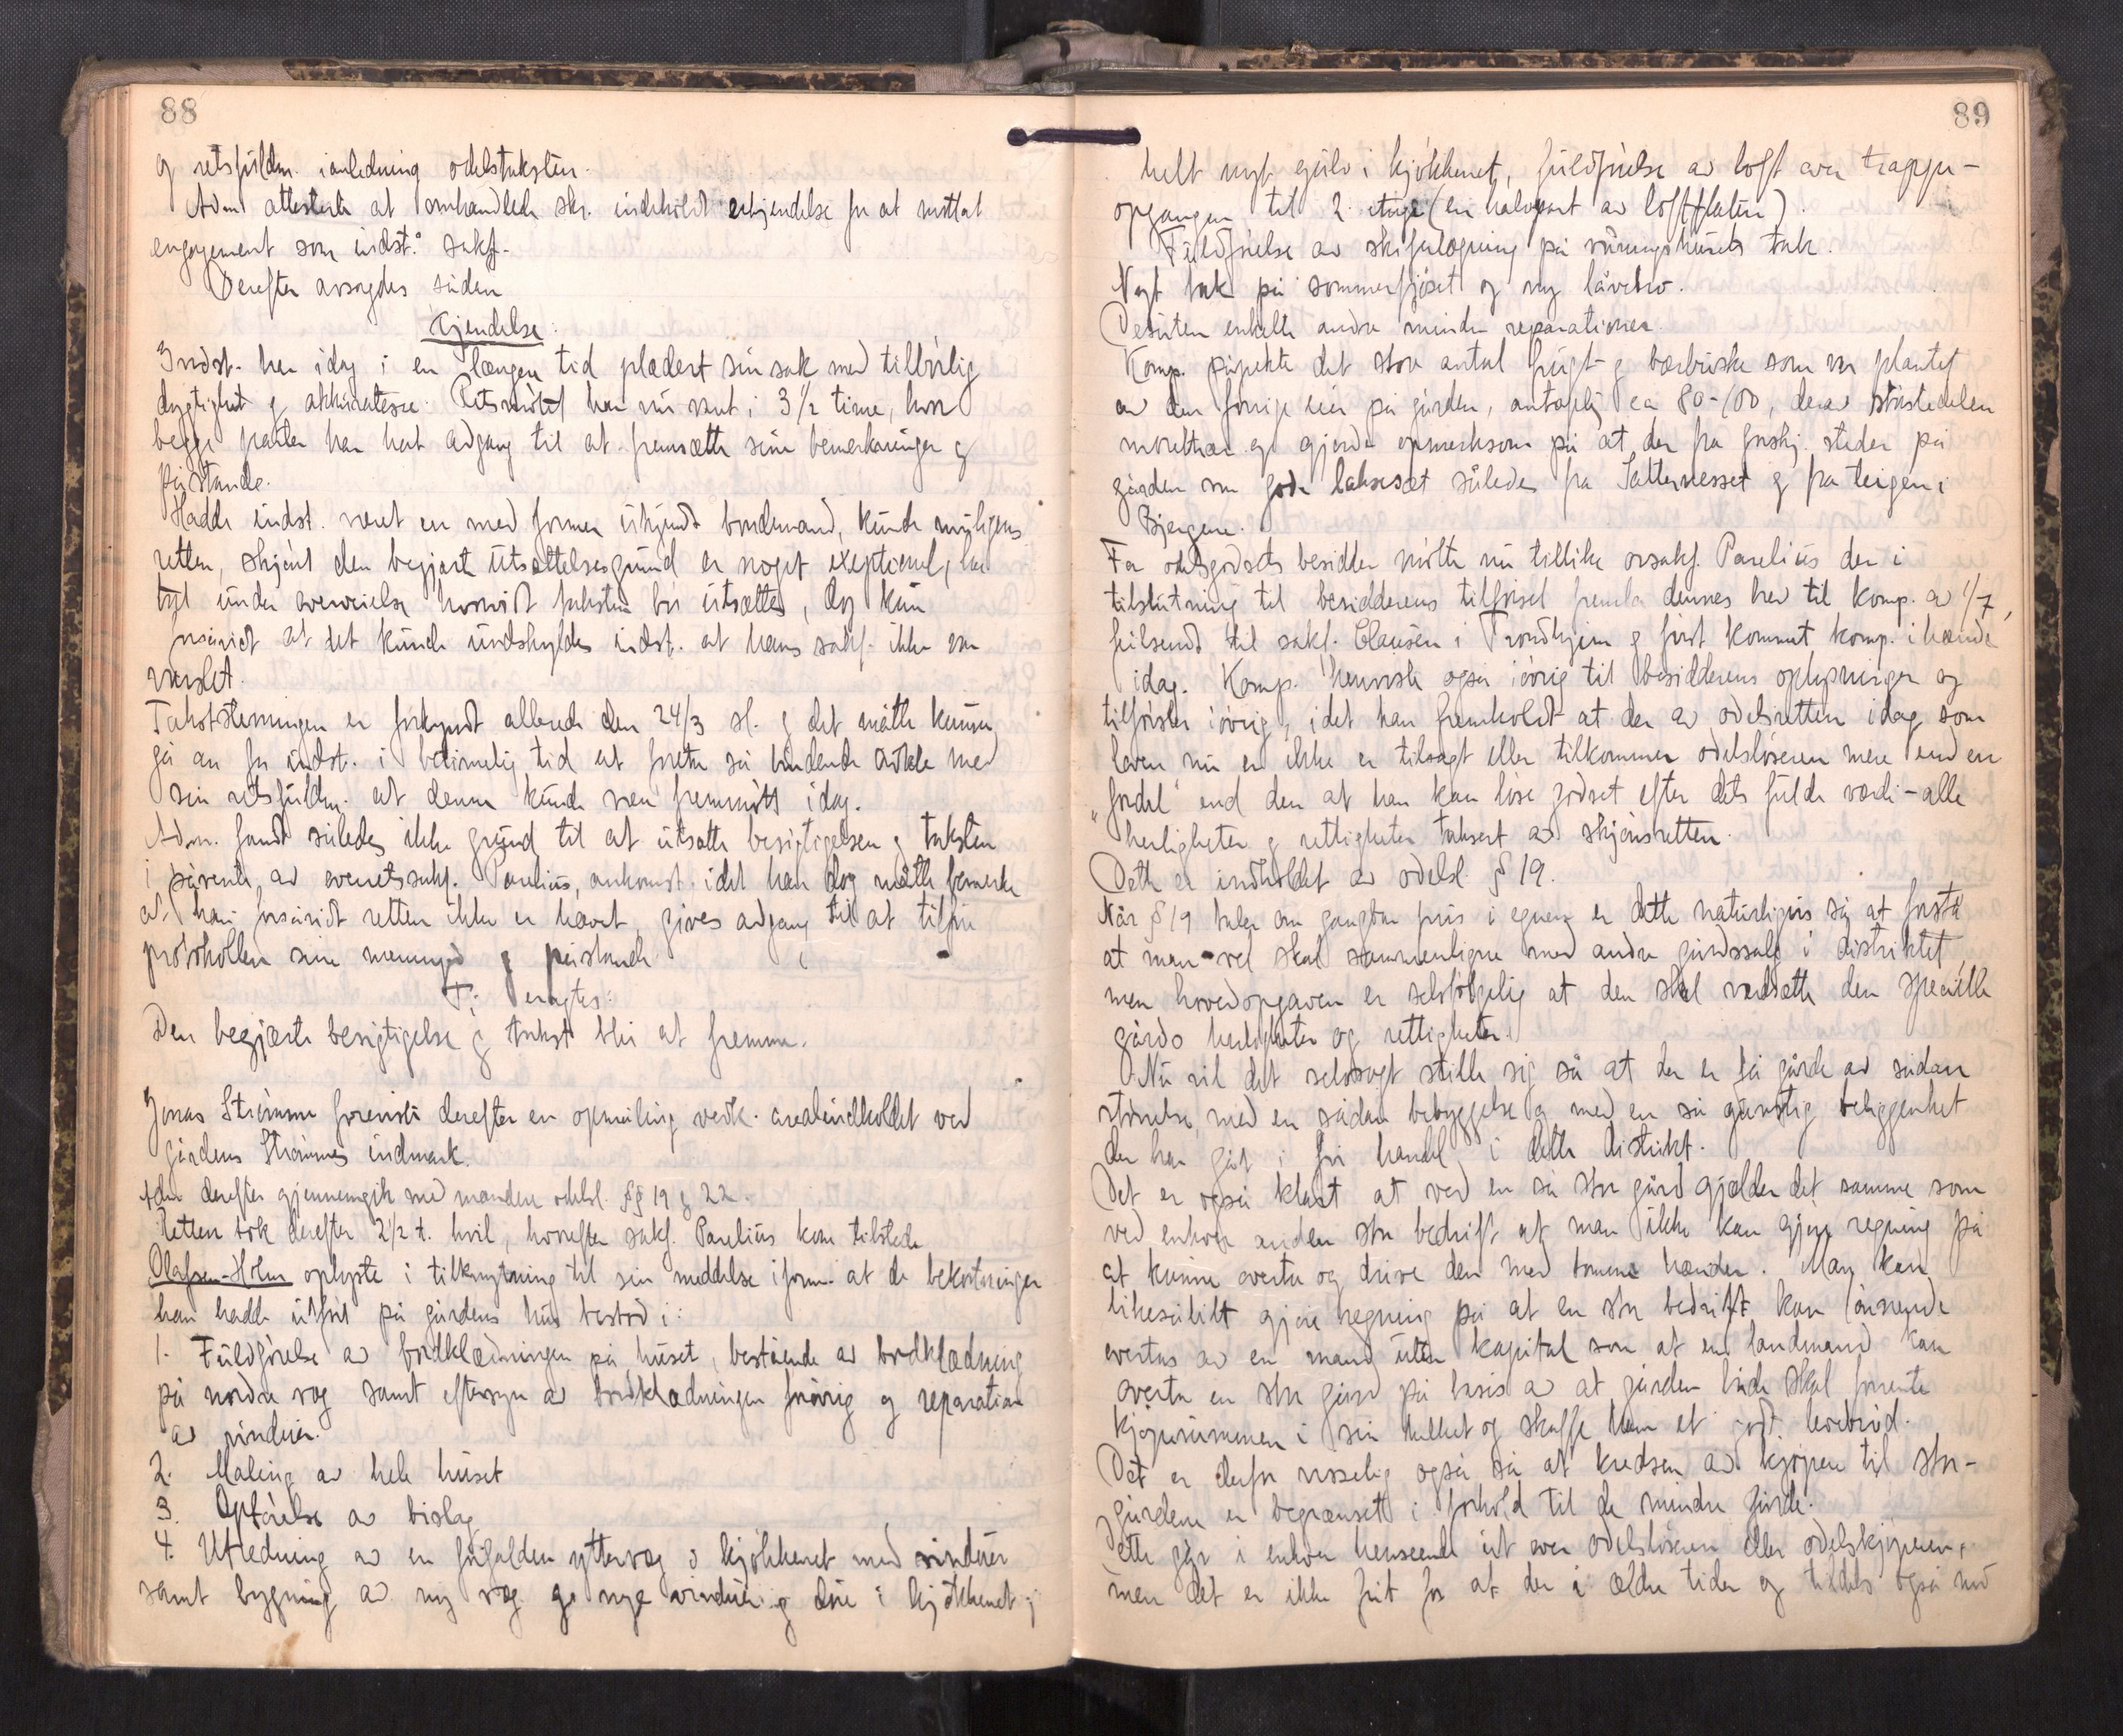 88
og retsfuldm. i anledning odelstaksten.
Adm. attesterte at omhandlede skr. indeholdt erkjendelse for at mottat
engagement som indst.s sakf.
Derefter avsagdes såden
Kjendelse:
Indst. har idag i en længere tid plædert sin sak med tilbørlig
dygtighet og akkuratesse. Retsmøtet har nu vart i 3 1/2 time, hvor
begge parter har hat adgang til at fremsætte sine bemerkninger og
påstande.
Hadde indst. været en med former ukjendt bondemand, kunde muligens
retten, skjønt den begjærte utsættelsesgrund er noget exeptionel, ha
tat under overveielse hvorvidt taksten bør utsættes, dog kun
såvidt at det kunde undskyldes indst. at hans sakf. ikke var
varslet.
Takststevningen er forkyndt allerede den 24/3 sl. og det måtte kunne
gå an for indst. i betimelig tid at foreta så bindende avtale med
sin retsfuldm. at denne kunde være fremmøtt idag.
Adm. fandt således ikke grund til at utsætte besigtigelsen og taksten
i påvente av overretssakf. Parelius, ankomst. idet han dog måtte bemerke
at han forsåvidt retten ikke er hævet, gives adgang til at tilføie
protokollen sine meninger og påstande
Ti eragtes:
Den begjærte besigtigelse og takst blir at fremme.
Jonas Strømme foreviste derefter en opmåling vedk. arealindholdet ved
gårdens Strømmes indmark.
Adm derefter gjennemgik med mændene odelsl. §§ 19 og 22.
Retten tok derefter 2 1/2 t. hvil, hvorefter sakf. Parelius kom tilstede
Olafsen-Holm oplyste i tilknytning til sin meddelse iform. at de bekostninger
han hadde utført på gårdens hus bestod i:
1. Fuldførelse av bordklædningen på huset, bestående av bordklædning
på nordre væg samt eftersyn av bordklædningen forøvrig og reparation
av vinduer.
2. Maling av hele huset
3. Opførelse av bislag
4. Utredning av en forfalden yttervæg i kjøkkenet med vinduer
samt bygning av ny væg og nye vinduer og døre i kjøkkenet,
89
helt nyt gulv i kjøkkenet, fuldførelse av loft over trappe-
opgangen til 2. etage (en halvpart av loftflaten).
Fuldførelse av skiferlægning på våningshusets tak.
Nyt tak på sommerfjøset og ny låvebro.
Desuten enkelte andre mindre reparationer.
Komp. påpekte det store antal frugt- og bærbuske som var plantet
av den forrige eier på gården, antagelig ca 80-100, derav størstedelen
moreltrær og gjorde opmerksom på at der fra forskj. steder på
gården var gode laksesæt således fra Sætternesset og fra teigen i
Bjergene.
For odelsgodsets besidder møtte nu tillike orsakf. Parelius der i
tilslutning til besidderens tilførsel fremla dennes brev til komp. av 1/7,
feilsendt til sakf. Clausen i Trondhjem og først kommet komp. i hænde
idag. Komp. henviste også iøvrig til besidderens oplysninger og
tilførsler iøvrig, idet han fremholdt at der av odelsretten idag som
loven nu er ikke er tilsagt eller tilkommer odelsløseren mere end en
"fordel" end den at han kan løse godset efter dets fulde værdi - alle
herligheter og rettigheter taksert av skjønsretten.
Dette er indholdet av odelsl. § 19.
Når § 19 taler om gangbar pris i egnen er dette naturligvis så at forstå
at man vel skal sammenligne med andre gårdssalg i distriktet
men hovedopgaven er selvfølgelig at den skal værdsætte den specielle
gårds herligheter og rettigheter.
Nu vil det selvsagt stille sig så at der er få gårde av sådan
størrelse, med en sådan bebyggelse og med en så gunstig beliggenhet
der har gåt i fri handel i dette distrikt.
Det er også klart at ved en så stor gård gjælder det samme som
ved enhver anden stor bedrift at man ikke kan gjøre regning på
at kunne overta og drive den med tomme hænder. Man kan
likesålitt gjøre regning på at en stor bedrift kan lønnende
overtas av en mand uten kapital som at en landmand kan
overta en stor gård på basis av at gården både skal forrente
kjøpesummen i sin helhet og skaffe ham et godt levebrød.
Det er derfor visselig også så at kredsen av kjøpere til stor-
gårdene er begrænset i forhold til de mindre gårde.
Dette går i enhver henseende ut over odelsløseren eller odelskjøperen,
men det er ikke frit for at der i ældre tider og tildels også nu